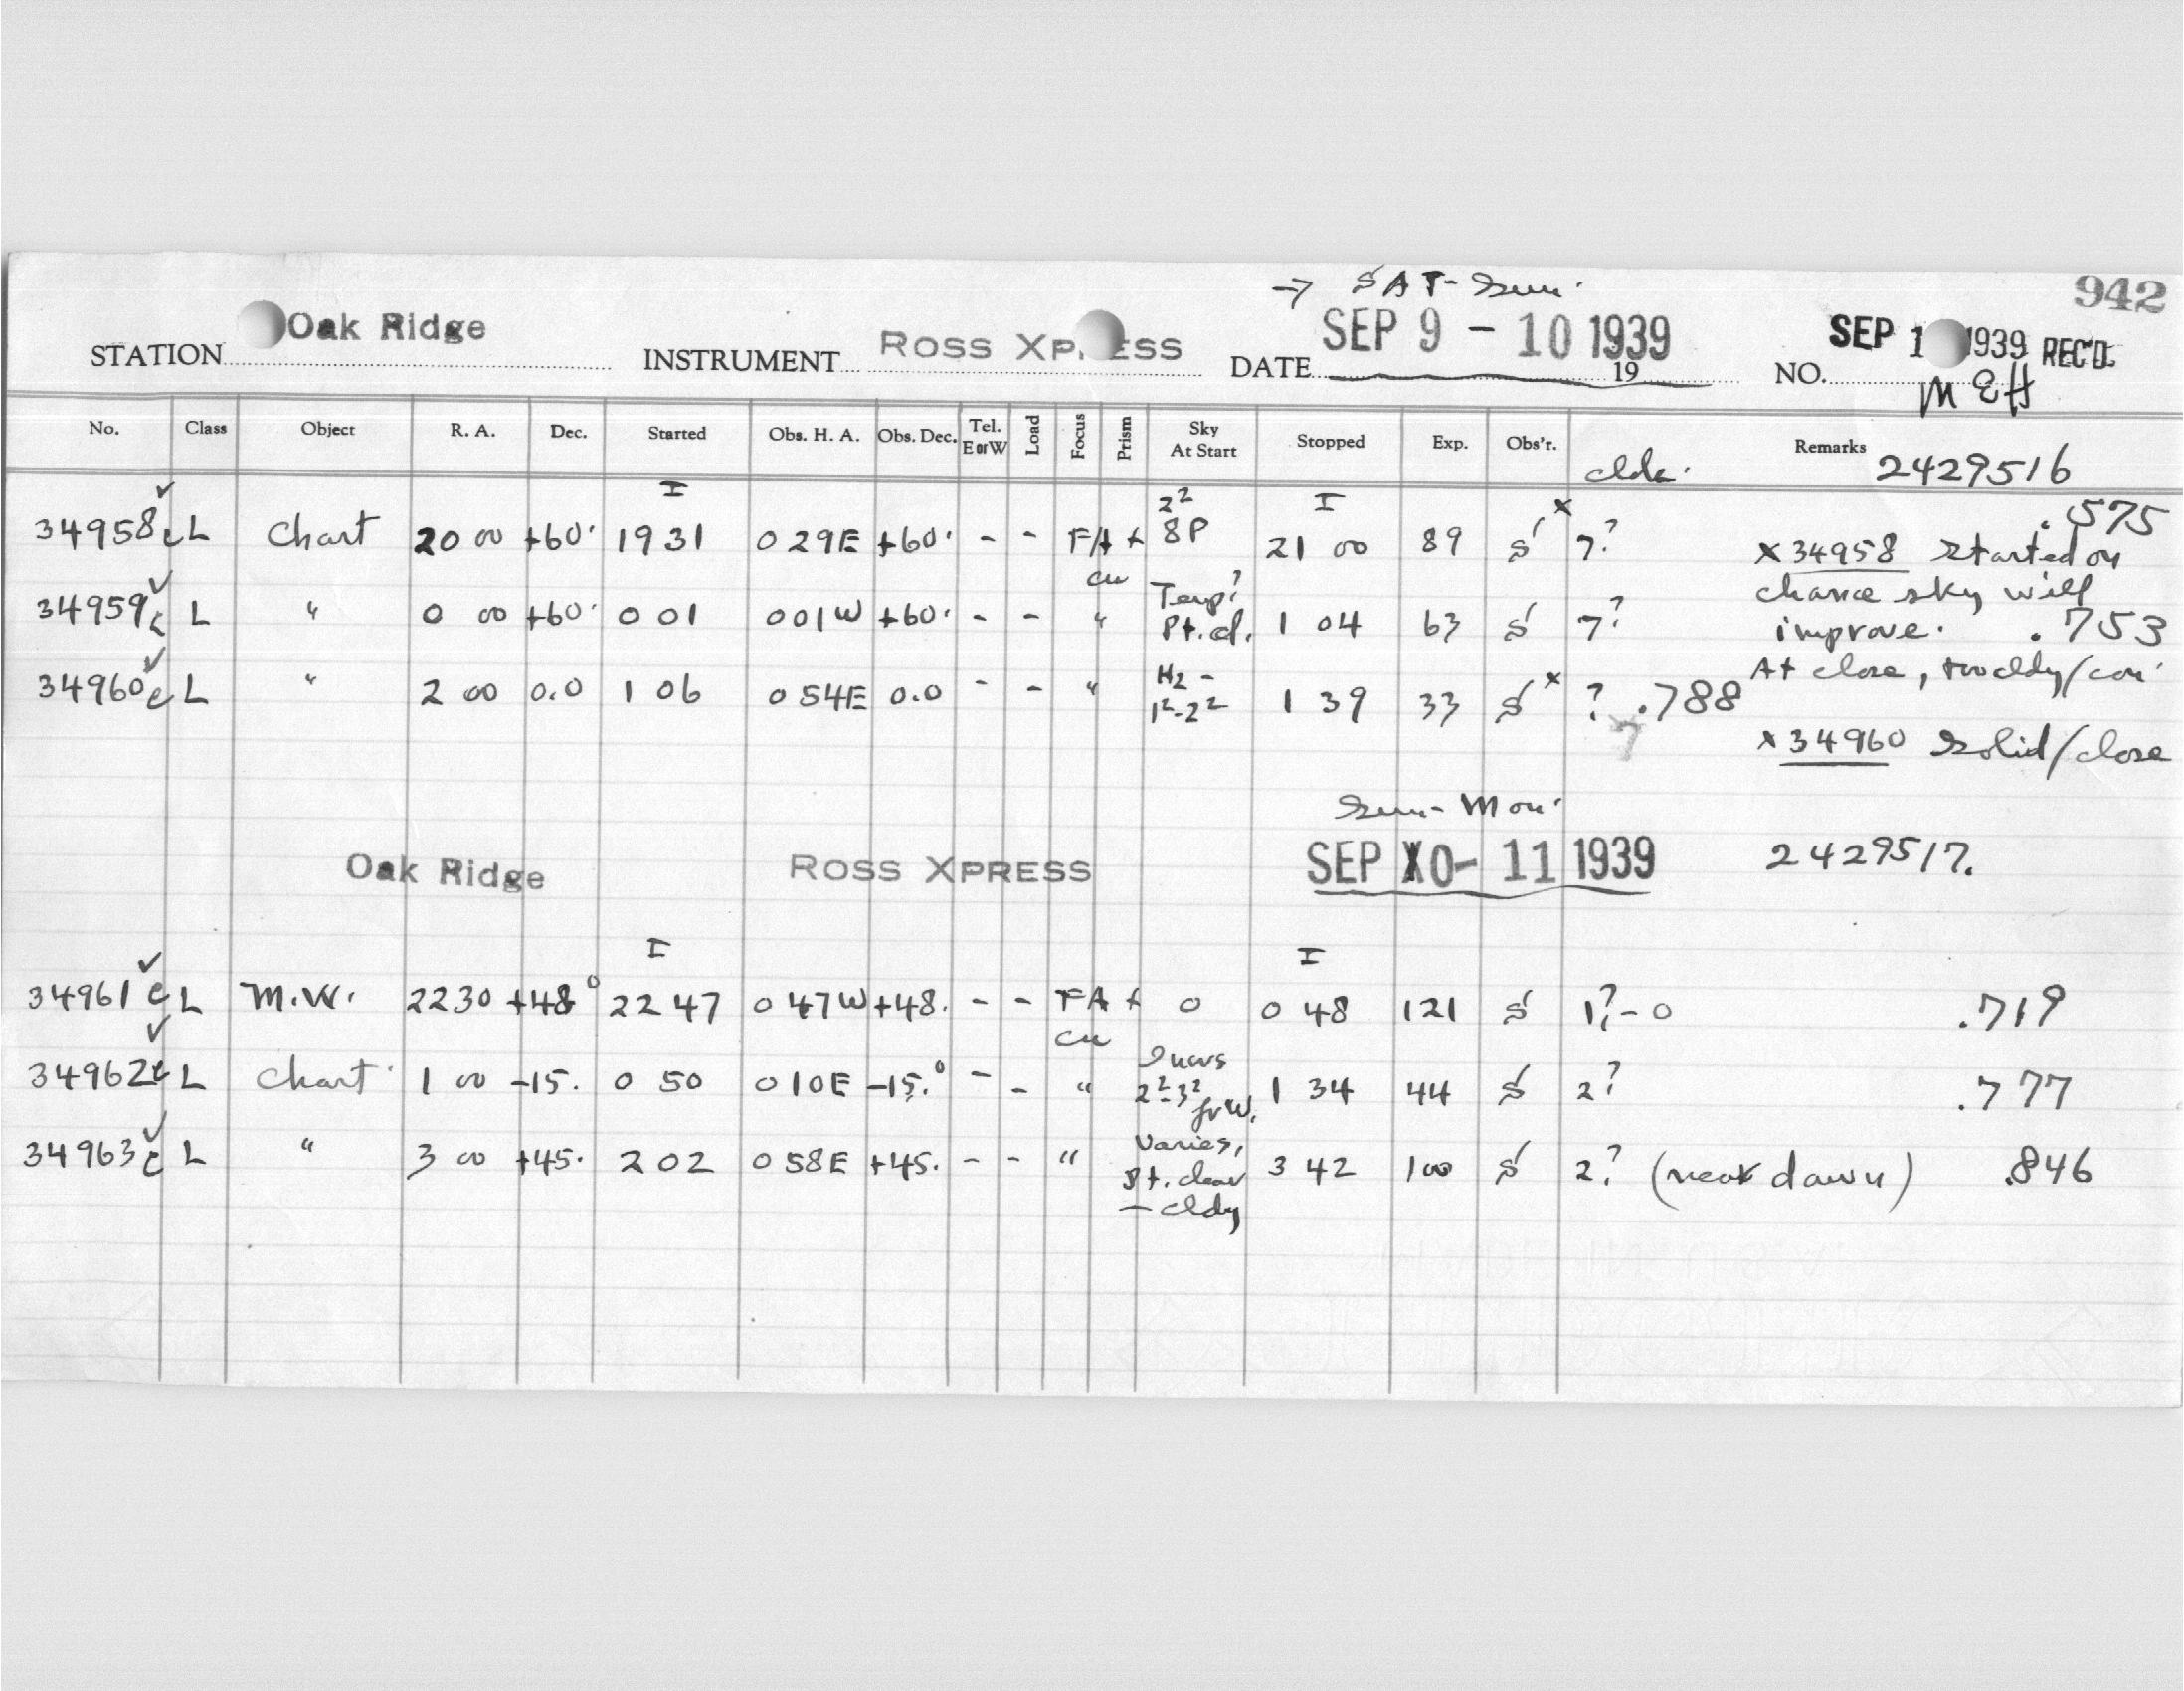 → SAT-Sun.
942
STATION Oak Ridge INSTRUMENT ROSS XP ESS DATE SEP 9 - 10 1939 19 NO. SEP 1 1939 REC'D.
MEH
No. Class Object R. A. Dec. Started Obs. H. A. Obs. Dec. Tel. E or W Load Focus Prism Sky At Start Stopped Exp. Obs'r. Remarks
2429516
I I
34958 L Chart 20 00 +60° 19 31 0 29E +60° - - FA + 2² 8P 21 00 89 S x 7? .575
x 34958 started on
cu
34959 L " 0 00 +60° 0 01 0 01W +60° - - " Temp? Pt. cl. 1 04 63 S 7? chance sky will
improve. .753
34960 L " 2 00 0.0 1 06 0 54E 0.0 - - " Hz - 1²-2² 1 39 33 S x ? .788 At close,
7
x 34960 Solid/close
Sun-Mon.
Oak Ridge ROSS XPRESS SEP 10- 11 1939 2429517.
I I
34961 L M.W. 22 30 +48° 22 47 0 47W +48. - - FA + 0 0 48 121 S 1?-0 .719
cu
34962 L Chart 1 00 -15. 0 50 0 10E -15.° - - " 2²-3² fr W. 1 34 44 S 2? .777
34963 L " 3 00 +45. 2 02 0 58E +45. - - " Varies, Pt. clear - cldy 3 42 100 S 2? (near dawn) .846